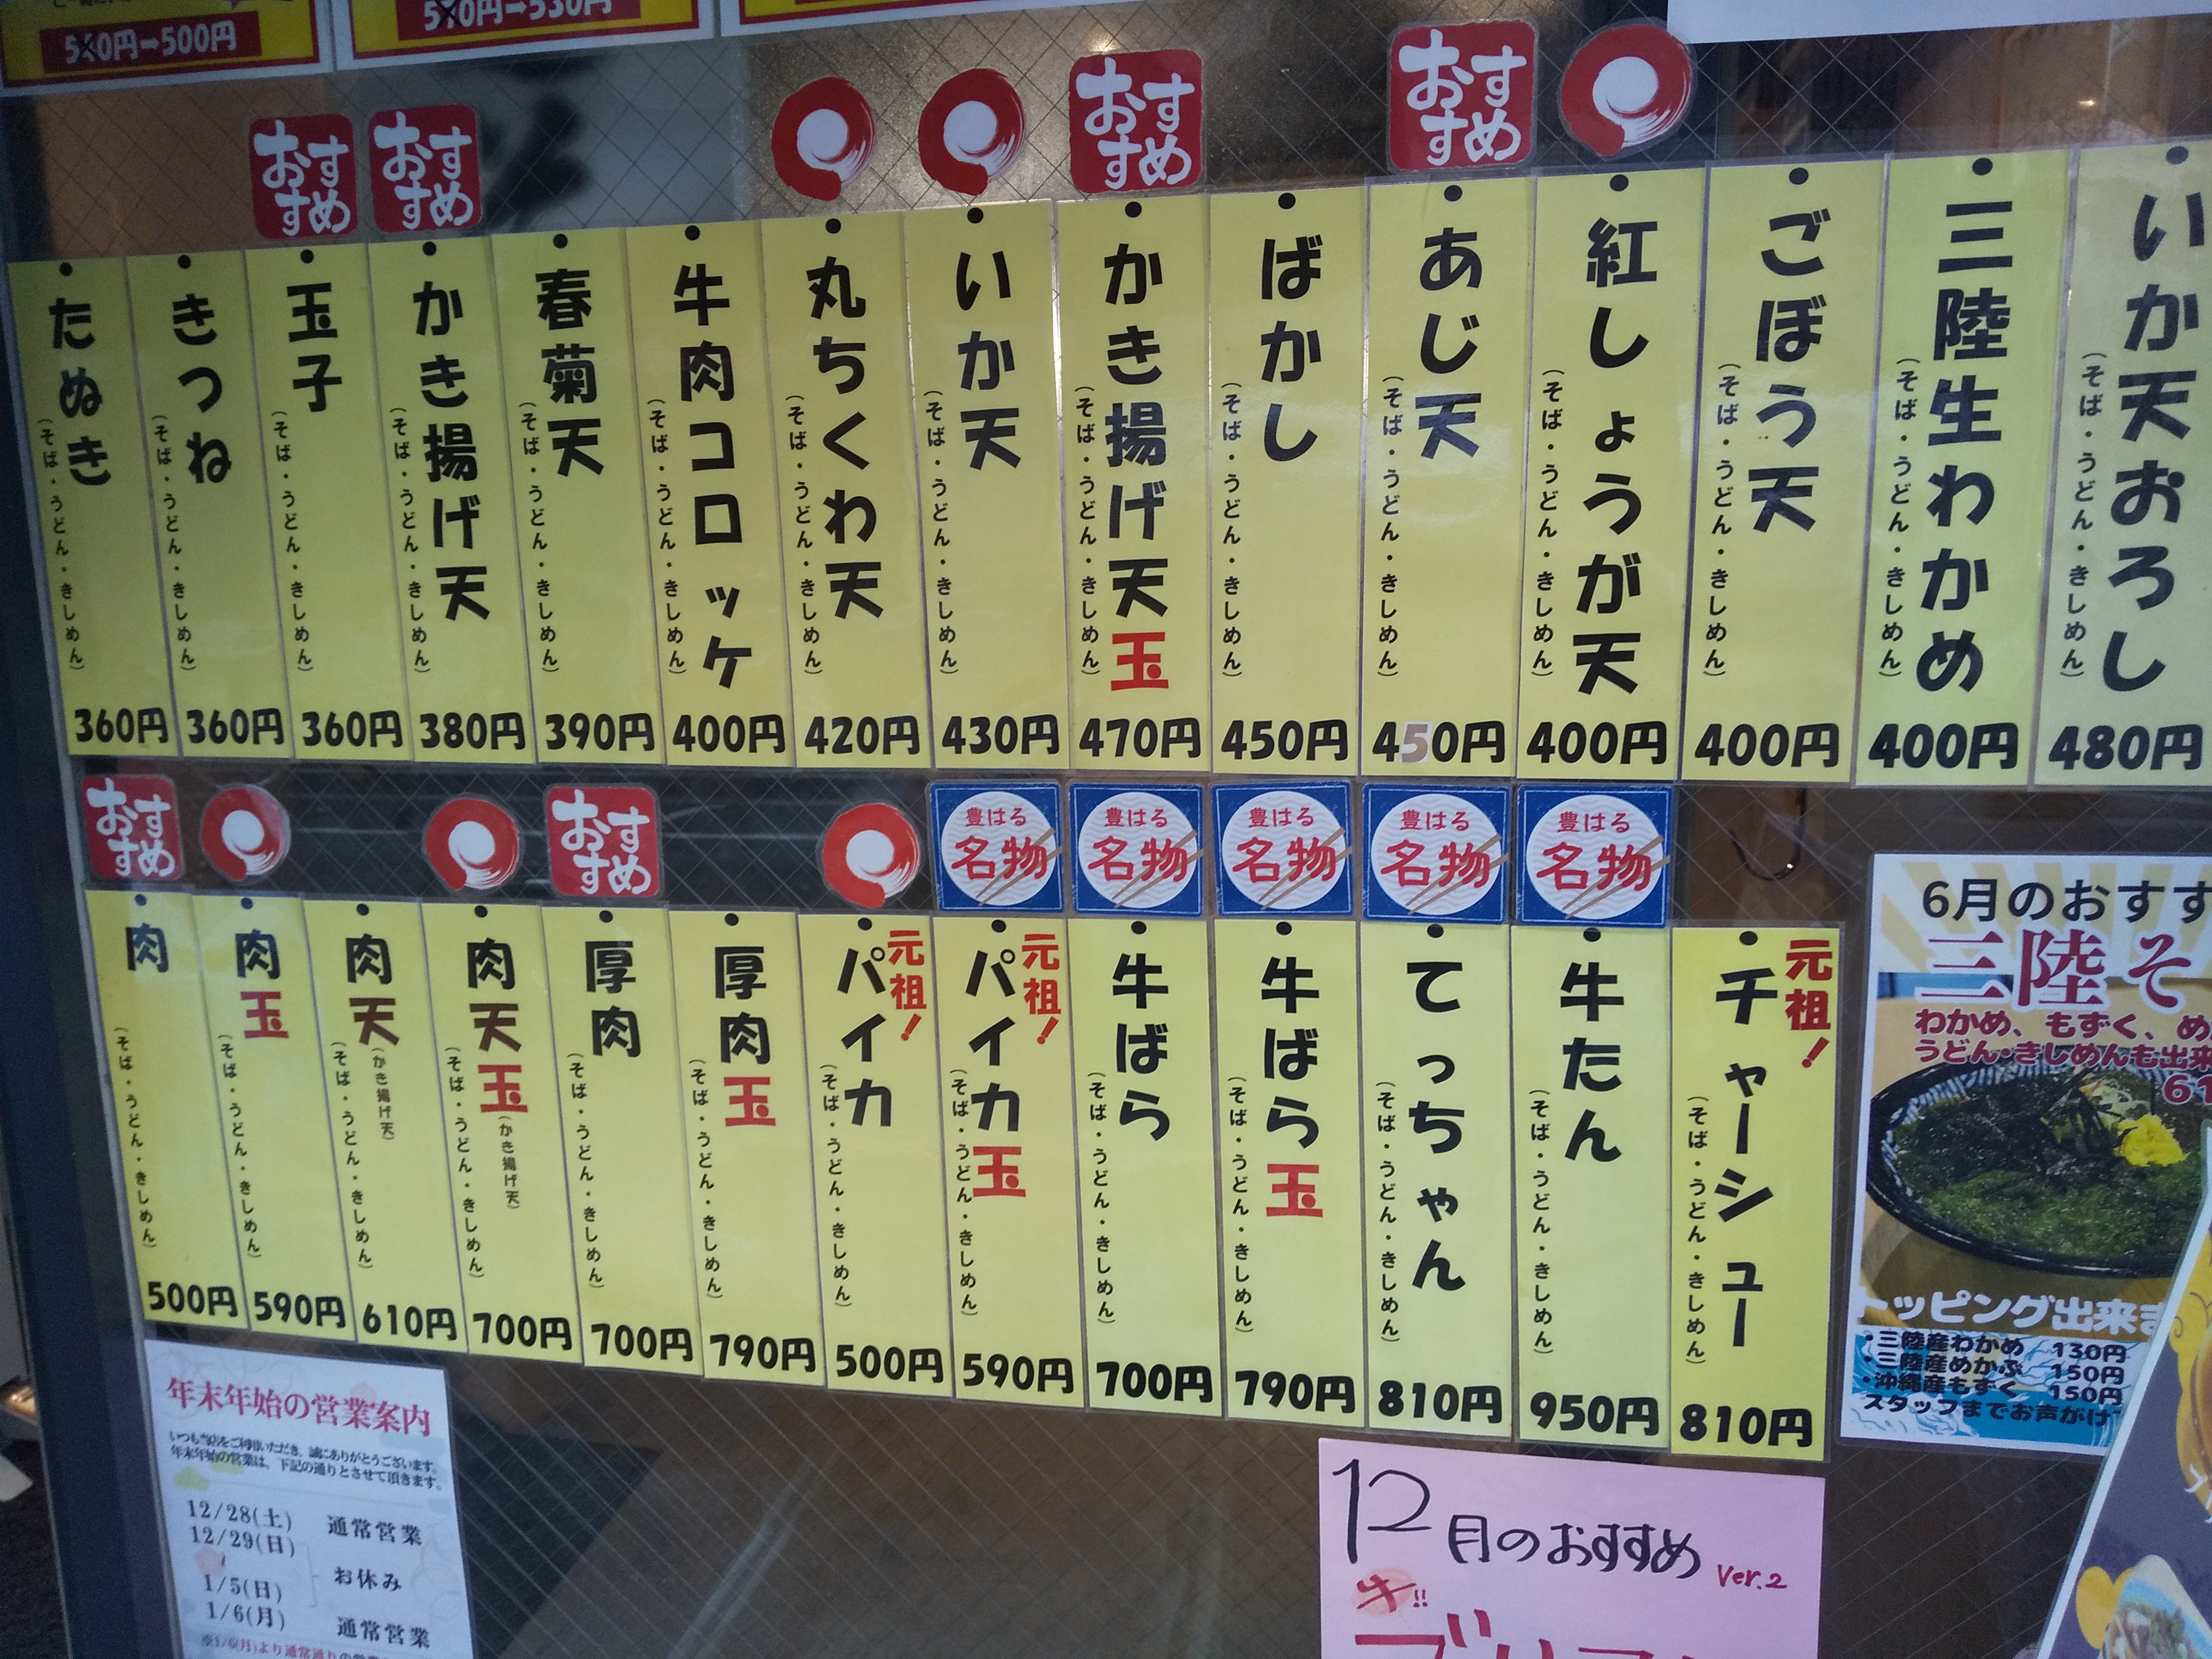 560円→500円
570円→530円
おすすめ
おすすめ
おすすめ
おすすめ
たぬき
(そば・うどん・きしめん)
360円
きつね
(そば・うどん・きしめん)
360円
玉子
(そば・うどん・きしめん)
360円
かき揚げ天
(そば・うどん・きしめん)
380円
春菊天
(そば・うどん・きしめん)
390円
牛肉コロッケ
(そば・うどん・きしめん)
400円
丸ちくわ天
(そば・うどん・きしめん)
420円
いか天
(そば・うどん・きしめん)
430円
かき揚げ天玉
(そば・うどん・きしめん)
470円
ばかし
(そば・うどん・きしめん)
450円
あじ天
(そば・うどん・きしめん)
450円
紅しょうが天
(そば・うどん・きしめん)
400円
ごぼう天
(そば・うどん・きしめん)
400円
三陸生わかめ
(そば・うどん・きしめん)
400円
いか天おろし
(そば・うどん・きしめん)
480円
おすすめ
おすすめ
豊はる
名物
豊はる
名物
豊はる
名物
豊はる
名物
豊はる
名物
肉
(そば・うどん・きしめん)
500円
肉玉
(そば・うどん・きしめん)
590円
肉天
(かき揚げ天)
(そば・うどん・きしめん)
610円
肉天玉
(かき揚げ天)
(そば・うどん・きしめん)
700円
厚肉
(そば・うどん・きしめん)
700円
厚肉玉
(そば・うどん・きしめん)
790円
元祖!
パイカ
(そば・うどん・きしめん)
500円
元祖!
パイカ玉
(そば・うどん・きしめん)
590円
牛ばら
(そば・うどん・きしめん)
700円
牛ばら玉
(そば・うどん・きしめん)
790円
てっちゃん
(そば・うどん・きしめん)
810円
牛たん
(そば・うどん・きしめん)
950円
元祖!
チャーシュー
(そば・うどん・きしめん)
810円
6月のおすす
三陸そ
わかめ、もずく、め
うどん・きしめんも出来
61
トッピング出来ま
・三陸産わかめ 130円
・三陸産めかぶ 150円
・沖縄産もずく 150円
スタッフまでお声がけ
年末年始の営業案内
いつも当店をご利用いただき、誠にありがとうございます。
年末年始の営業は、下記の通りとさせて頂きます。
12/28(土) 通常営業
12/29(日)
お休み
1/5(日)
1/6(月) 通常営業
12月のおすすめ Ver.2
牛!!